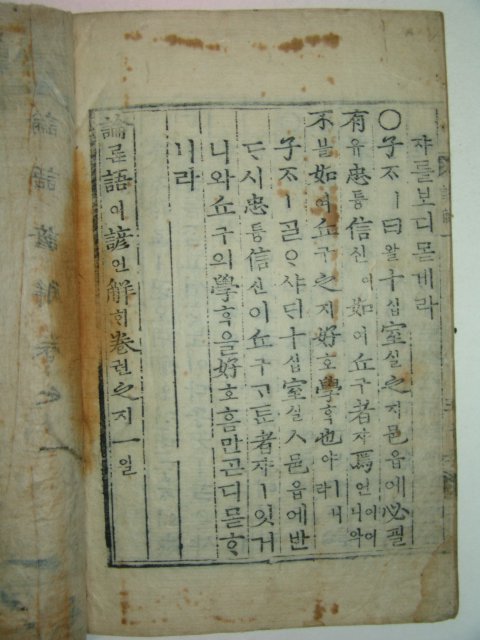 쟈ᄅᆞᆯ보디몯게라
○子ᄌᆞㅣ曰왈十십室실之지邑읍에必필
有유忠튱信신이如여丘구者쟈焉언이어니와
不블如여丘구之지好호學ᄒᆞᆨ也야ㅣ니라
子ᄌᆞㅣᄀᆞᆯᄋᆞ샤ᄃᆡ十십室실ㅅ邑읍에반
ᄃᆞ시忠튱信신이丘구ᄀᆞᄐᆞᆫ者쟈ㅣ잇거
니와丘구의學ᄒᆞᆨ을好호홈만ᄀᆞᆮ디몯ᄒᆞ
니라
論론語어諺언解ᄒᆡ卷권之지一일
論語諺解卷之